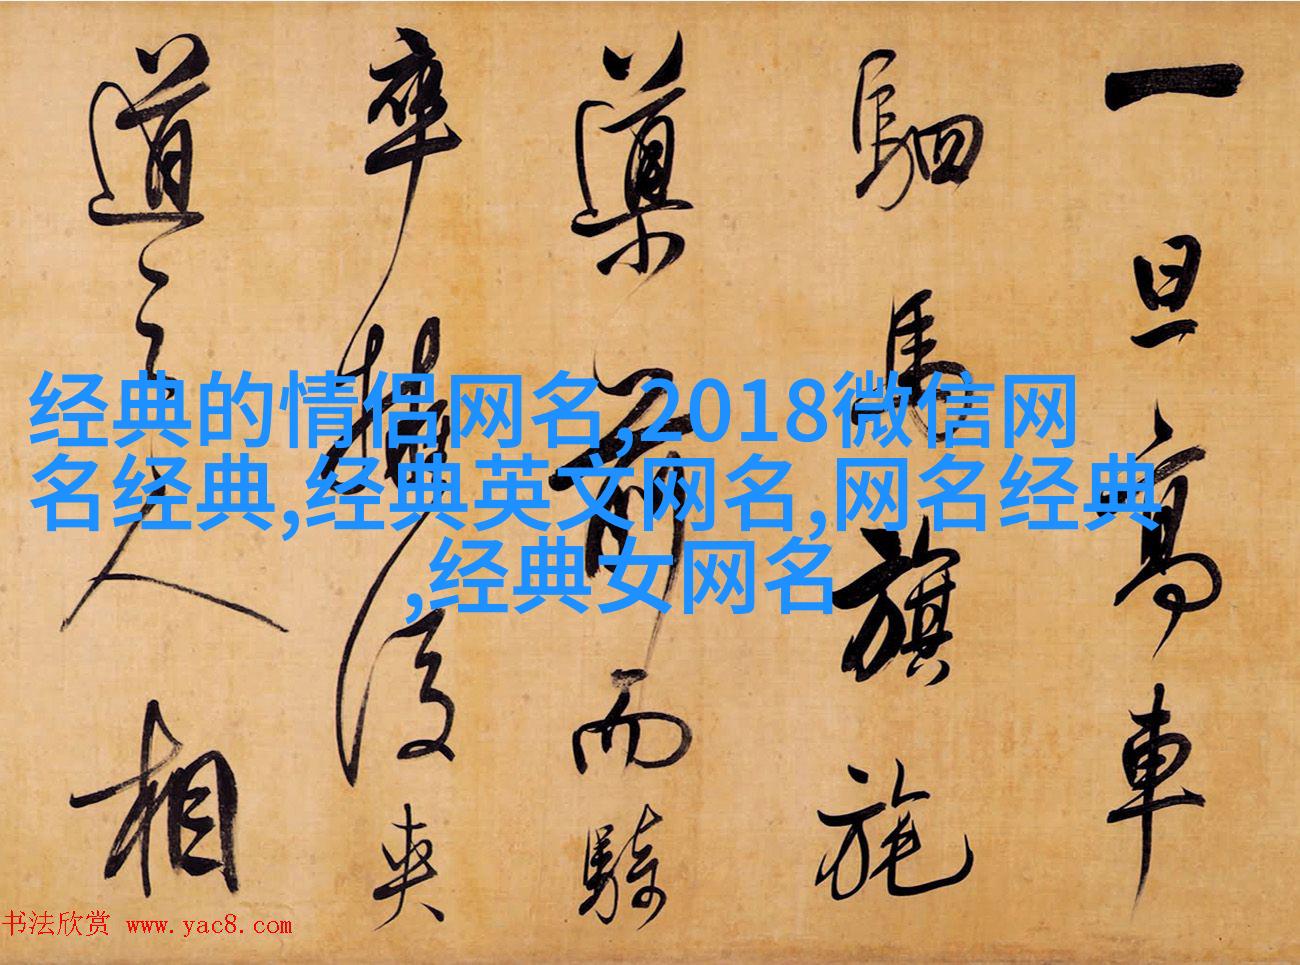 一旦高車
駟馬旗旄
導前而騎
卒擁後夾
道之人相
经典的情侣网名,2018微信网
名经典,经典英文网名,网名经典
,经典女网名
书法欣赏 www.yac8.com